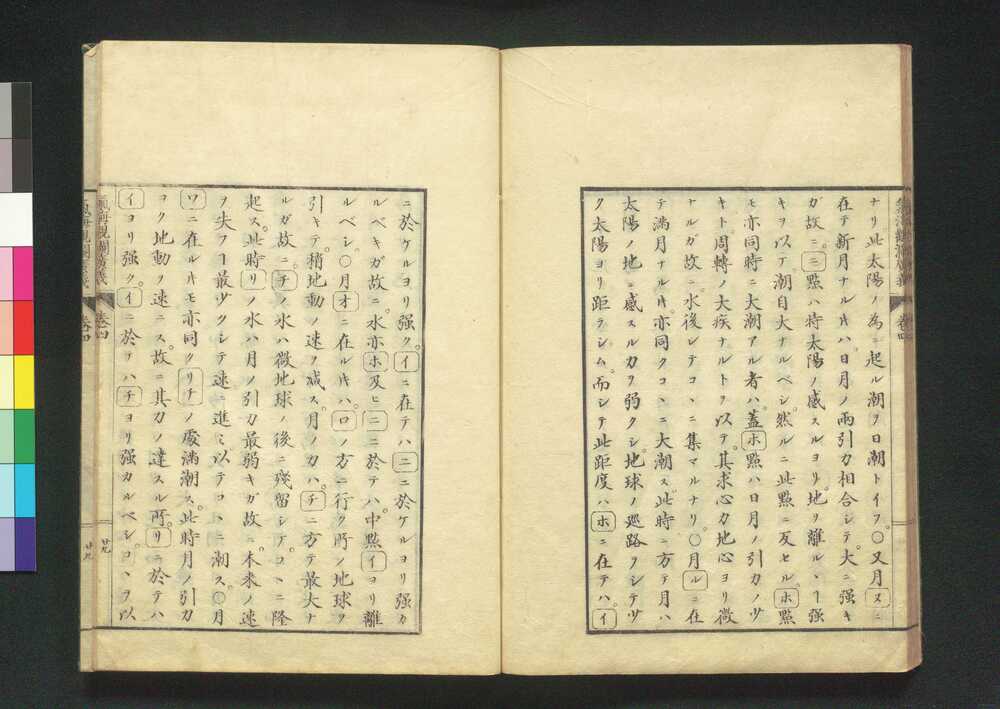 ナリ此太陽ノ為ニ起ル潮ヲ日潮トイフ○又月ヌニ
在テ新月ナル𪜈ハ日月ノ両引力相合シテ大ニ强キ
ガ故ニニ點ハ特太陽ノ感スルヨリ地ヲ離ルヽヿ强
キヲ以テ潮自大ナルベシ然ルニ此點ニ反セルホ點
モ亦同時ニ大潮アル者ハ蓋ホ點ハ日月ノ引力ノ少
キト周轉ノ大疾ナルトヲ以テ其求心力地心ヨリ微
ナルガ故ニ水後レテコヽニ集マルナリ○月ルニ在
テ満月ナル𪜈亦同クコヽニ大潮ス此時ニ方テ月ハ
太陽ノ地ニ感スル力ヲ弱クシ地球ノ巡路ヲシテ少
ク太陽ヨリ距ラシム而シテ此距度ハホニ在テハイ
ニ於ケルヨリ强クイニ在テハニニ於ケルヨリ强カ
ルベキガ故ニ水亦ホ及ヒニニ於テハ中點イヨリ離
ルベシ○月オニ在ル𪜈ハロノ方ニ行ク所ノ地球ヲ
引キテ稍地動ノ速ヲ减ス月ノ力ハチニ方テ最大ナ
ルガ故ニチノ水ハ微地球ノ後ニ残留シテコヽニ隆
起ス此時リノ水ハ月ノ引力最弱キガ故ニ本来ノ速
ヲ失フヿ最少クシテ速ニ進ミ以テコヽニ潮ス○月
ワニ在ル𪜈モ亦同クリチノ處満潮ス此時月ノ引力
ヨク地動ヲ速ニス故ニ其力ノ達スル所リニ於テハ
イヨリ强クイニ於テハチヨリ强カルベシコヽヲ以
氣海觀瀾廣義 巻四
廿九